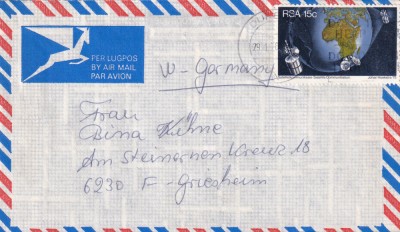 RSA 15c
PER LUGPOS
BY AIR MAIL
PAR AVION
W-Germany
Frau
Dina Kühne
Am Steinernen Kreuz 18
6230 F-Griesheim